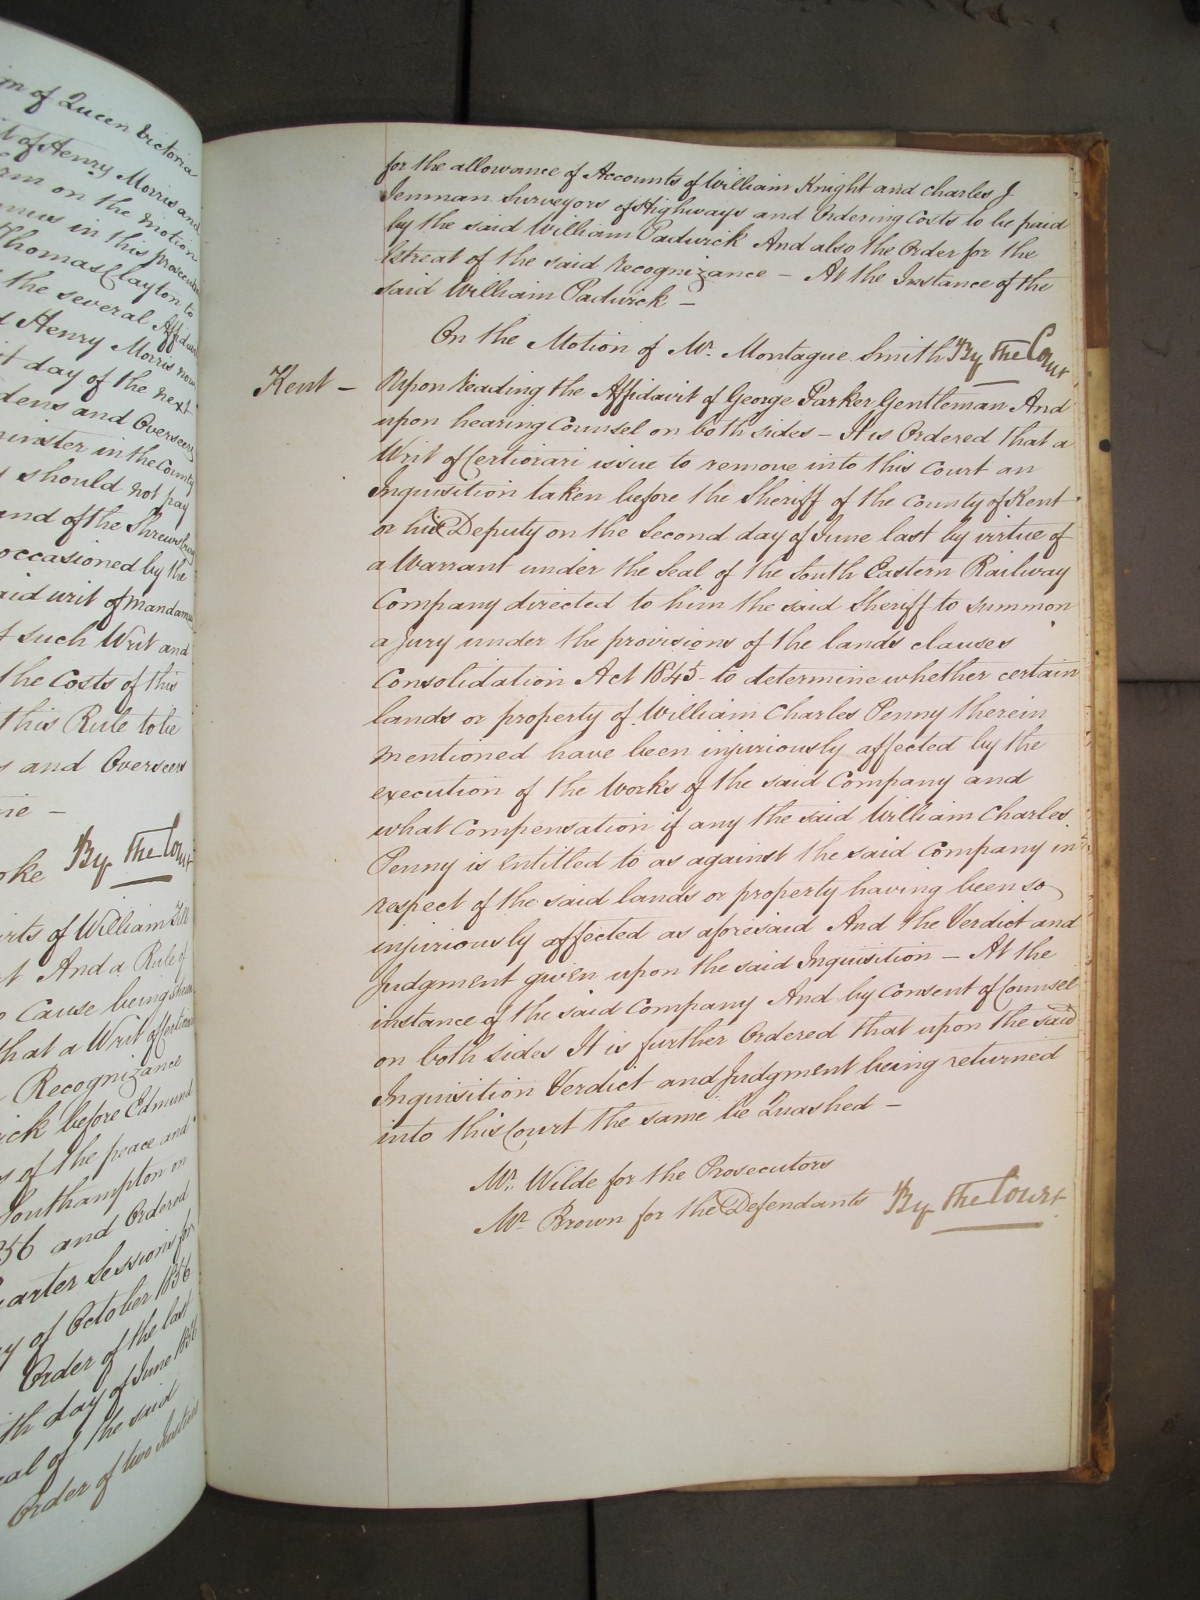 gn of Queen Victoria
t of Henry Morris and
rm on the motion
in this prosecution
Thomas Clayton to
the several Affidavits
d Henry Morris now
t day of the next
dens and Overseers
minster in the County
y should not pay
and of the Shrewsbury
occasioned by the
aid writ of Mandamus
f such Writ and
the Costs of this
this Rule to be
s and Overseers
ne —
oke By the Court
its of William Till
t And a Rule of
Cause being shewn
that a Writ of Certiorari
Recognizance
ick before Edmund
s of the peace and
Southampton on
56 and Ordered
uarter Sessions for
y of October 1856
Order of the last
th day of June 1856
eal of the said
Order of two Justices
for the allowance of Accounts of William Knight and Charles J
Jenman Surveyors of Highways and Ordering Costs to be paid
by the said William Padwick And also the Order for the
Estreat of the said Recognizance — At the Instance of the
said William Padwick —
On the Motion of Mr. Montague Smith By the Court
Kent — Upon reading the Affidavit of George Parker Gentleman And
upon hearing Counsel on both sides — It is Ordered that a
Writ of Certiorari issue to remove into this Court an
Inquisition taken before the Sheriff of the County of Kent
or his Deputy on the Second day of June last by virtue of
a Warrant under the Seal of the South Eastern Railway
Company directed to him the said Sheriff to summon
a Jury under the provisions of the lands clauses
Consolidation Act 1845 to determine whether certain
lands or property of William Charles Penny therein
mentioned have been injuriously affected by the
execution of the Works of the said Company and
what Compensation if any the said William Charles
Penny is entitled to as against the said Company in
respect of the said lands or property having been so
injuriously affected as aforesaid And the Verdict and
Judgment given upon the said Inquisition — At the
instance of the said Company And by Consent of Counsel
on both sides It is further Ordered that upon the said
Inquisition Verdict and Judgment being returned
into this Court the same be Quashed —
Mr. Wilde for the Prosecutors
Mr. Brown for the Defendants By the Court